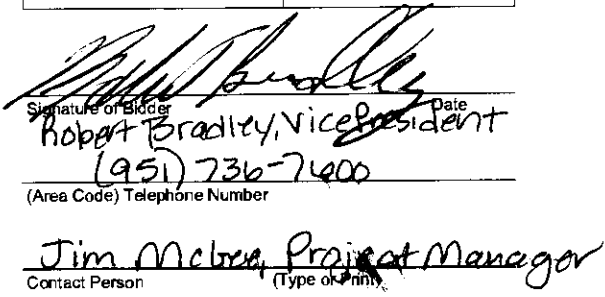 Signature of Bidder Date
Robert Bradley, Vice President
(951) 736-7600
(Area Code) Telephone Number
Jim McGee, Project Manager
Contact Person (Type or Print)